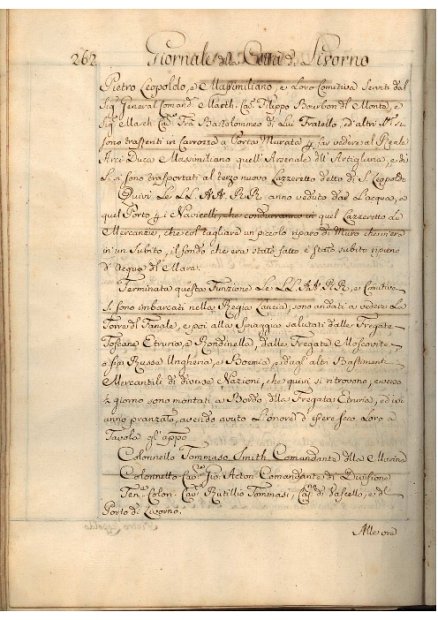 262 Giornale della Città di Livorno
Pietro Leopoldo, e Massimiliano, e Loro Comitiva Serviti dal
Sig.r General Comand.e March. Cav. Filippo Bourbon del Monte, e
Sig.r March. Cav. Frà Bartolommeo di Lui Fratello, ed altri SS.ri si
sono trasferiti in Carrozza a Porta Murata p. far vedere al Reale
Arci Duca Massimiliano quell'Arsenale di Artiglieria, e di
Lì si sono trasportati al terzo nuovo Lazzeretto detto di S. Leopoldo
Quivi Le LL. AA. RR. anno veduto dar L'acqua, a
quel Porto p. i Navicelli, che condurranno in quel Lazzeretto Le
Mercanzie, che col tagliare un piccolo riparo di Muro
in un Subito, il fondo che era stato fatto è stato subito ripieno
d'Acqua del Mare.
Terminata questa Funzione Le LL. AA. RR. e Comitiva
Si sono imbarcati nella Regia Lancia, sono andati a vedere La
Torre del Fanale, e poi alla Spiaggia salutati dalle Fregate
Toscane Etruria, e Rondinella, dalle Fregate Moscovite
o sian Russe Ungheria, e Boemia, e dagl'altri Bastimenti
Mercantili di diverse Nazioni, che quivi si ritrovono, e verso
giorno sono montati a Bordo della Fregata Etruria, ed ivi
anno pranzato, avendo avuto L'onore d'essere seco Loro a
Tavola gl'appo
Colonnello Tommaso Smith Comandante della Marina
Colonnello Cav. Gio. Acton Comandante di Divisione
Ten. Colon. Cav. Rutilio Tommasi, Cap.no di Vascello, e del
Porto di Livorno.
Alle ore